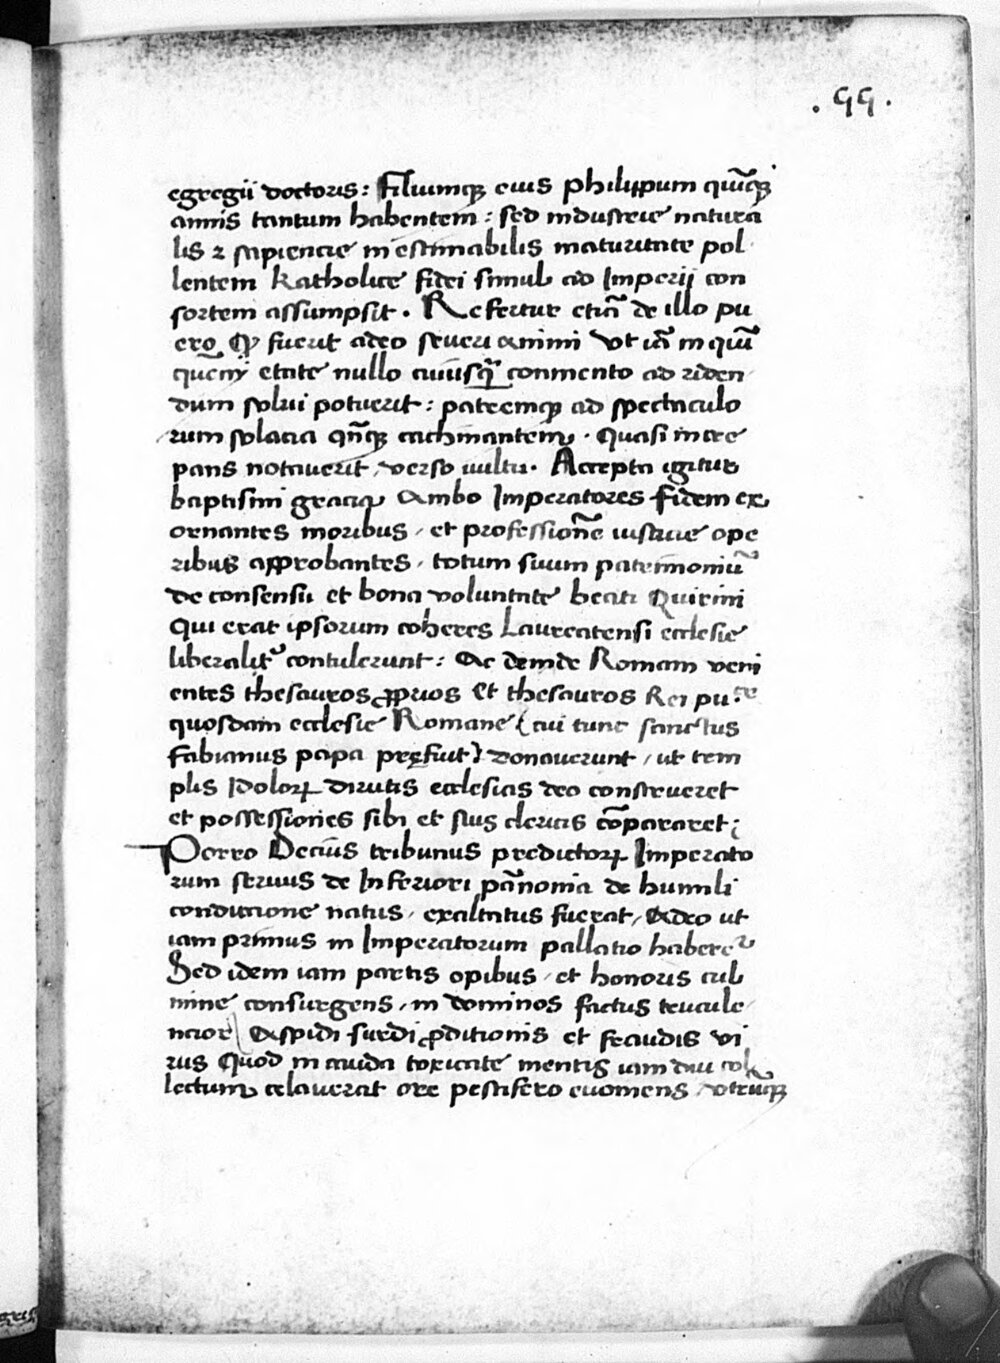 . 99 .
egregii doctoris : Filiumqꝫ eius philippum quīqꝫ
annis tantum habentem : sed industrie natura
lis ⁊ sapiencie inestimabilis maturitate pol
lentem Katholice fidei simul ad Imperij con
sortem assumpsit . Refertur etiā de illo pu
ero ꝙ fuerit adeo seueri animi vt iā in quī
quēnij etate nullo cuiusqꝫ conmento ad riden
dum solui potuerit : patremqꝫ ad spectaculo
rum solacia cachinantem . quasi incre
pans notauerit / verso uultu . Accepta igitur
baptismi gracia ambo Imperatores fidem ex
ornantes moribus / et professionē iusticie ope
ribus approbantes / totum suum patrimoniū
de consensu et bona voluntate beati Quirini
qui erat ipsorum coheres Laureatensi ecclesie
liberalit͛ contulerunt : Ac deinde Romam veni
entes thesauros ꝓprios et thesauros Rei pu.ce
quosdam ecclesie Romane ( cui tunc sanctus
fabianus papa pręfuit ) donauerunt / ut tem
plis Idolorꝝ dirutis ecclesias deo construeret
et possessiones sibi et suis clericis cōpararet ;
Porro Decius tribunus predictorꝝ Imperato
rum seruus de Inferiori pānonia de humili
condicione natus / exaltatus fuerat / adeo ut
iam primus in Imperatorum pallatio haberet͛
Sed idem iam partis opibus / et honoris cul
mine consurgens / in dominos factus trucule
ncior / aspidi surdi ꝓditionis et fraudis vi
rus quod in auida toxicate mentis iam diu col
lectum celauerat ore pestifero euomens / vtrūqꝫ